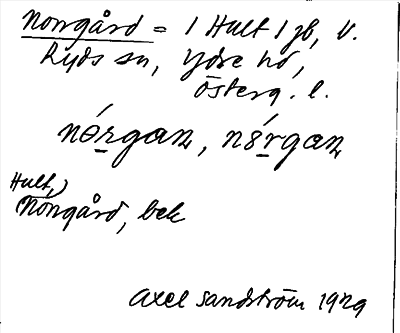 Norrgård = 1 Hult 1 jb, V.
Ryds sn, Ydre hd,
Österg. l.
nórgan, nórgan
Hult,
Norrgård, bek
Axel Sandström 1929